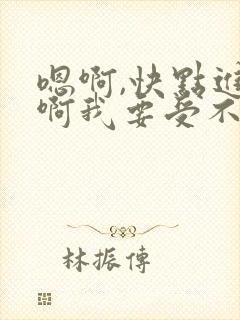 嗯啊,快點進
啊我要受不
林振傳